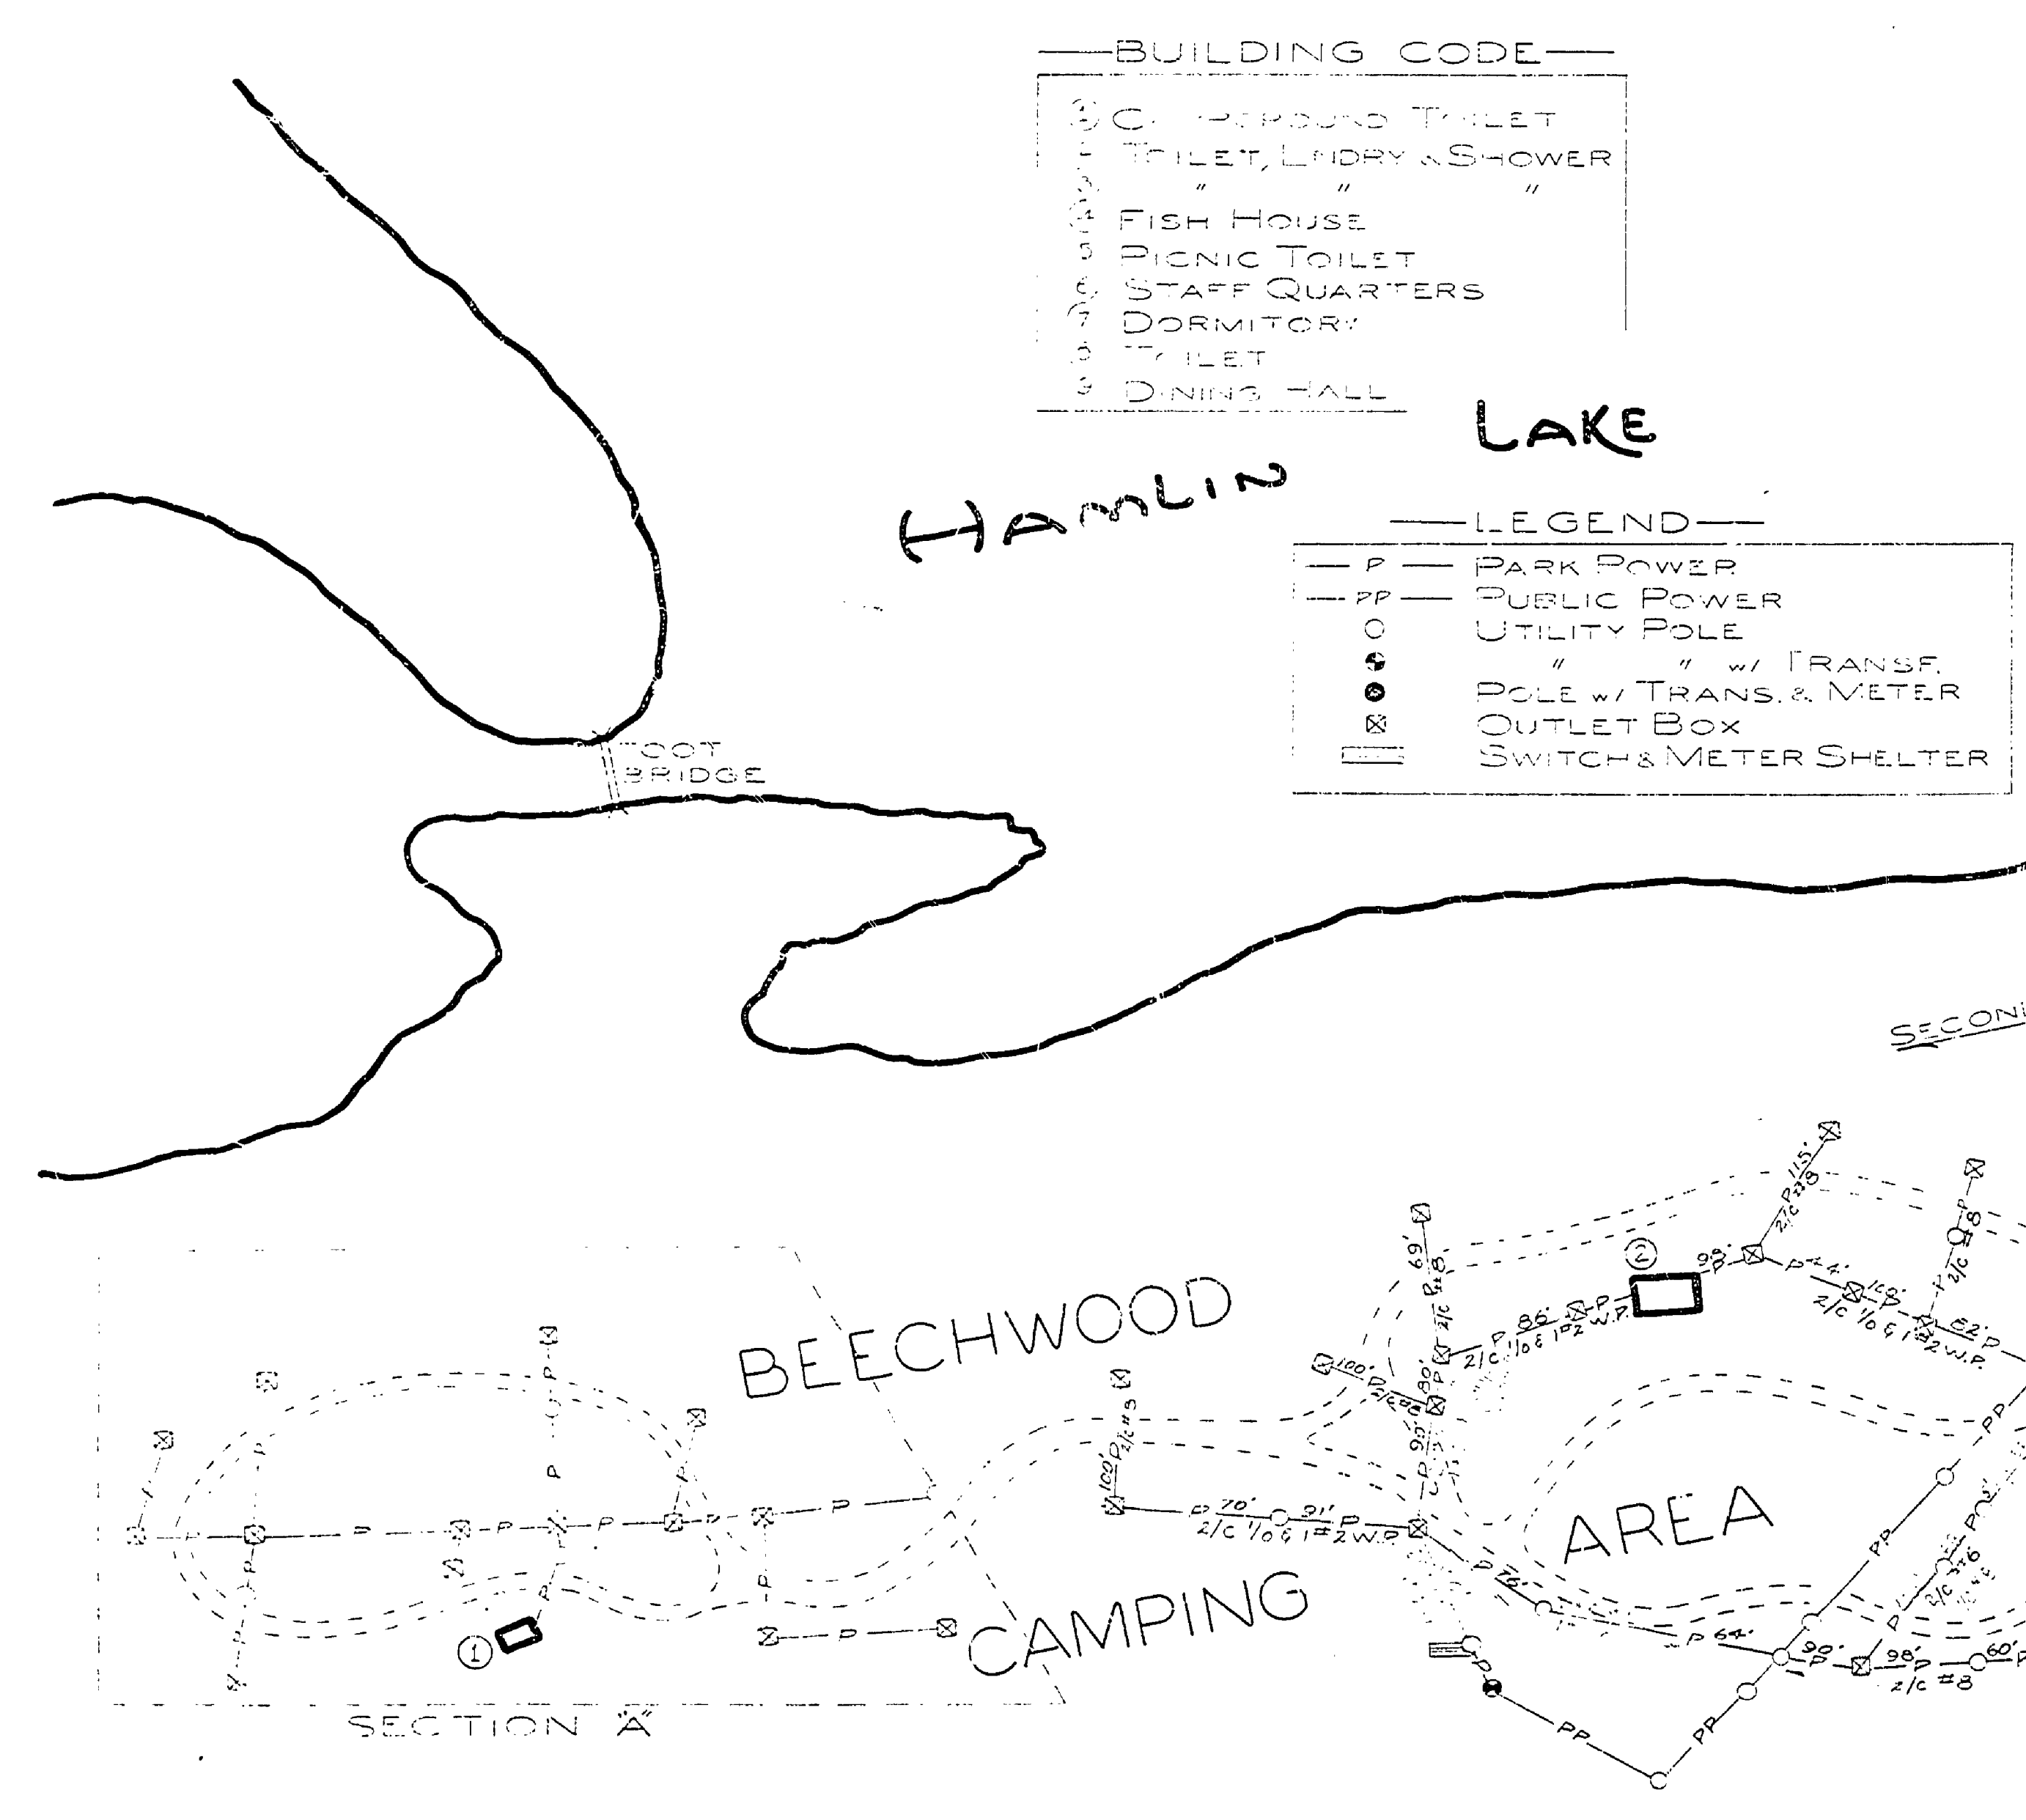 BUILDING CODE
1 CAMPGROUND TOILET
2 TOILET, LNDRY & SHOWER
3 " " "
4 FISH HOUSE
5 PICNIC TOILET
6 STAFF QUARTERS
7 DORMITORY
8 TOILET
9 DINING HALL
HAMLIN LAKE
LEGEND
P PARK POWER
PP PUBLIC POWER
UTILITY POLE
" " W/ TRANSF.
POLE W/ TRANS. & METER
OUTLET BOX
SWITCH & METER SHELTER
FOOT
BRIDGE
BEECHWOOD
CAMPING
AREA
SECTION "A"
1
2
P 115'
2/C #8
69'
P
2/C #8
P 86' P
2/C 1/0 & 1#2 W.P.
98'
P
P 44'
P
2/C #8
2/C 1/0 & 1#2 W.P.
82' P
100' P
80'
P
P
100' P
2/C #8
P 70' 91' P
2/C 1/0 & 1#2 W.P.
P 76'
P 64'
90'
P
98' P
2/C #8
60'
P
P
PP
PP
PP
PP
P
P
P
P
P
P
P
P
P
P
P
P
P
P